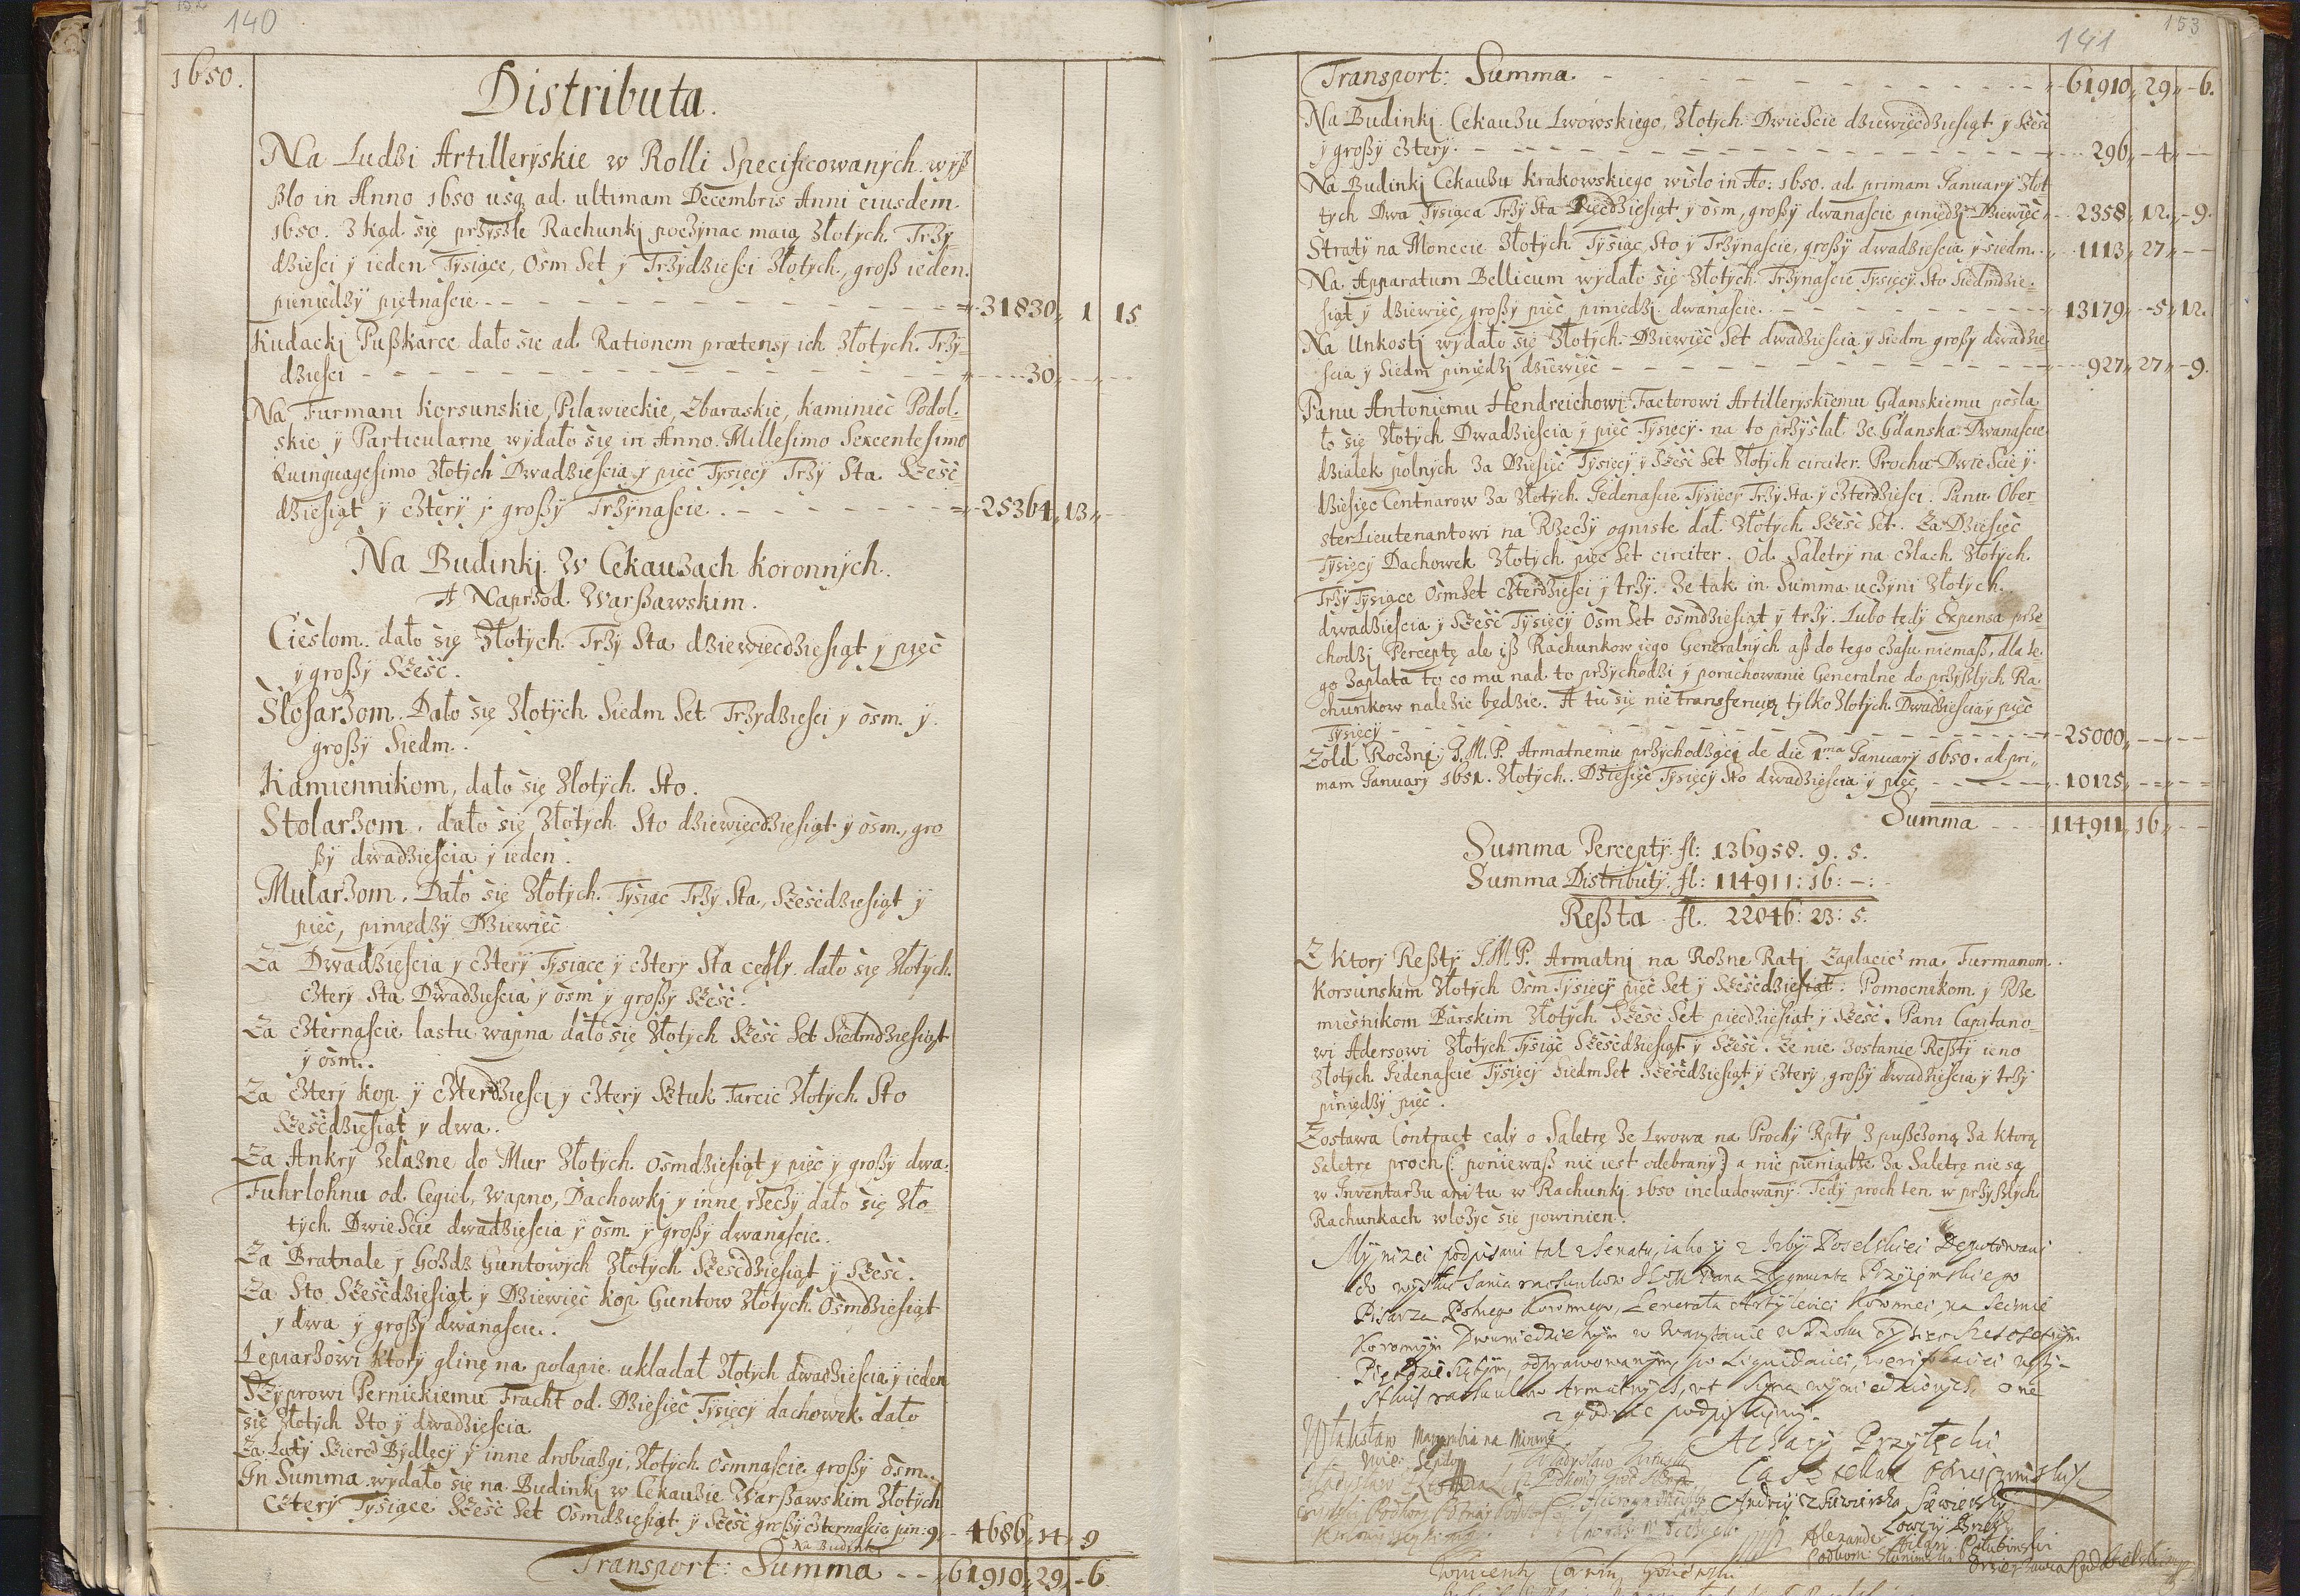 140
1650.
Distributa.
Na Ludzi Artilleryskie w Rolli Specificowanych wyß
ßlo in Anno 1650 usq ad ultimam Decembris Anni eiusdem
1650. zkąd się przyszłe Rachunki poczynac maią Złotych. Trzy-
dziesci y ieden Tysiące, Osm Set y Trzydziesci Złotych, groß ieden.
pieniędzy piętnascie - 31830 1 15
Kudacki Pußkarce dało się ad Rationem prætensy ich Złotych. Trzy-
dziesci - 30
Na Furmani Korsunskie, Pilawieckie, Zbaraskie, Kaminiec Podol-
skie y Particularne wydało się in Anno Millesimo Sexcentesimo
Quinquagesimo Złotych Dwadziescia y pięc Tysięcy Trzy Sta Szesc-
dziesiąt y cztery y großy Trzynascie - 25364 13
Na Budinki w Cekauzach Koronnych.
A Naprzod Warßawskim.
Cieslom dało się Złotych Trzy Sta dziewięcdziesiąt y pięc
y großy Szesc.
Slosarzom. Dało się Złotych Siedm Set Trzydziesci y osm. y
großy Siedm.
Kamiennikom, dało się Złotych. Sto.
Stolarzom, dało się Złotych Sto dziewięcdziesiąt y osm, gro
ßy dwadziescia y ieden.
Mularzom. Dało się Złotych. Tysiąc Trzy Sta, Szescdziesiąt y
pięc, piniędzy Dziewięc
Za Dwadziescia y cztery Tysiące y cztery Sta cegły dało się Złotych.
cztery Sta Dwadziescia y osm y großy Szesc.
Za czternascie lastu wapna dało się Złotych Szesc Set Siedmdziesiąt
y osm.
Za cztery kop y czterdziesci y cztery Sztuk Tarcic Złotych. Sto
Szescdziesiąt y dwa.
Za Ankry żelazne do Mur Złotych. osmdziesiąt y pięc y großy dwa.
Fuhrlohnu od Cegieł, wapno, Dachowki y inne rzeczy dało się Zło-
tych. Dwiescie dwadziescia y osm. y großy dwanascie.
Za Bratnale y Gozdz Guntowych Złotych Szescdziesiąt y Szesc.
Za Sto Szescdziesiąt y Dziewięc kop Guntow Złotych. Osmdziesiąt
y dwa y großy dwanascie.
Lepiarzowi ktory glinę na polapie układał Złotych dwadziescia y ieden
Szyprowi Pernickiemu Fracht od Dziesięc Tysięcy dachowek dało
się Złotych Sto y dwadziescia
Za Loty Szierci Bydlęcy y inne drobiazgi, Złotych. osmnascie großy osm.
In Summa wydało się na Budinki w Cekauzie Warßawskim Złotych
Cztery Tysiące Szesc Set Osmdziesiąt y Szesc großy czternascie pin: 9 - 4686 14 9
Na Budinki
Transport: Summa - 61910 29 6
153
141
Transport: Summa - 61910 29 6.
Na Budinki Cekauzu Lwowskiego, Złotych Dwiescie dziewięcdziesiąt y Szesc
y großy cztery - 296 4
Na Budinki Cekauzu Krakowskiego wisło in Ao: 1650. ad primam January Zło
tych Dwa Tysiąca Trzy Sta Pięcdziesiąt y osm, großy dwanascie piniędzi Dziewięc - 2358 12 9.
Straty na Monecie Złotych Tysiąc Sto y Trzynascie, großy dwadziescia y siedm. - 1113 27
Na Apparatum Bellicum wydało się Złotych Trzynascie Tysięcy Sto Siedmdzie-
siąt y dziewięc, großy pięc, piniędzi dwanascie. - 13179 5 12.
Na Unkosti wydało się Złotych Dziewięc Set dwadziescia y siedm großy dwadzie-
scia y siedm piniędzi dziewięc - 927 27 9.
Panu Antoniemu Hendreichowi Factorowi Artilleryskiemu Gdanskiemu posła
ło się Złotych Dwadziescia y pięc Tysięcy. na to przysłał ze Gdanska Dwanascie
działek polnych za Dziesięc Tysięcy y Szesc Set Złotych circiter. Prochu Dwiescie y
Dziesięc Centnarow za Złotych. Jedenascie Tysięcy Trzy Sta y czterdziesci. Panu Ober-
sterLieutenantowi na Rzeczy ogniste dał Złotych Szesc Set. Za Dziesięc
Tysięcy Dachowek Złotych pięc Set circiter. Od Saletry na czlach Złotych.
Trzy Tysiące OsmSet czterdziesci y trzy. Ze tak in Summa uczyni Złotych.
dwadziescia y Szesc Tysięcy Osm Set osmdziesiąt y trzy. Lubo tedy Expensa prze-
chodzi Perceptę ale iß Rachunkow iego Generalnych aß do tego czasu niemaß, dla te-
go zapłata to co mu nad to przychodzi y porachowanie Generalne do przyßłych Ra-
chunkow należic będzie. A tu się nie transferuią tylko Złotych. Dwadziescia y pięc
Tysięcy - 25000
Zołd Roczny J.M.P. Armatnemu przychodzący de die 1.ma January 1650. ad pri-
mam January 1651. Złotych. Dziesięc Tysięcy Sto dwadziescia y pięc - 10125
Summa - 114911 16
Summa Percepty fl: 136958. 9. 5.
Summa Distributy. fl: 114911: 16: -:-
Reßta fl. 22046: 23: 5.
Z ktory Reßty J.M.P. Armatni na Rożne Rati Zapłacic ma. Furmanom
Korsunskim Złotych Osm Tysięcy pięc Set y Szescdziesiąt. Pomocnikom y Rze
miesnikom Barskim Złotych Szesc Set pięcdziesiąt y Szesc. Pani Capitano-
wi Adersowi Złotych Tysiąc Szescdziesiąt y Szesc. Że nie zostanie Reßty ieno
Złotych Jedenascie Tysięcy SiedmSet Szescdziesiąt y cztery großy dwadziescia y trzy
piniędzy pięc.
Zostawa Contract cały o Saletrę ze Lwowa na Prochy Rpty zpußczoną za ktorą
Saletrę proch (: poniewaß nie iest odebrany :) a nie pieniądze za Saletrę nie są
w Inventarzu ani tu w Rachunki 1650 includowany Tedy proch ten w przyßłych
Rachunkach włożyc się powinien.
My nizei podpisani tak z Senatu, iako y z Izby Poselskiei Deputowani
do wysłuchania rachunkow JeM Pana Zygmunta Przyiemskiego
Pisarza Polnego Koronnego, Generała Artyleriei Koronnei, na Seimie
Koronnym Dwuniedzielnym w Warszawie w Roku Tysiąc Szescsetnym
Pięcdziesiątym, odprawowanym, po Liquidaciei, weryfikaciei
rachunkow Armatnych, ut supra one
zgodnie podpisuiemy.
Achacy Przyłęcki
Kasztelan Oswięcimski
Andrzy Siewierski
Łowczy
Alexander Hilary Połubinski